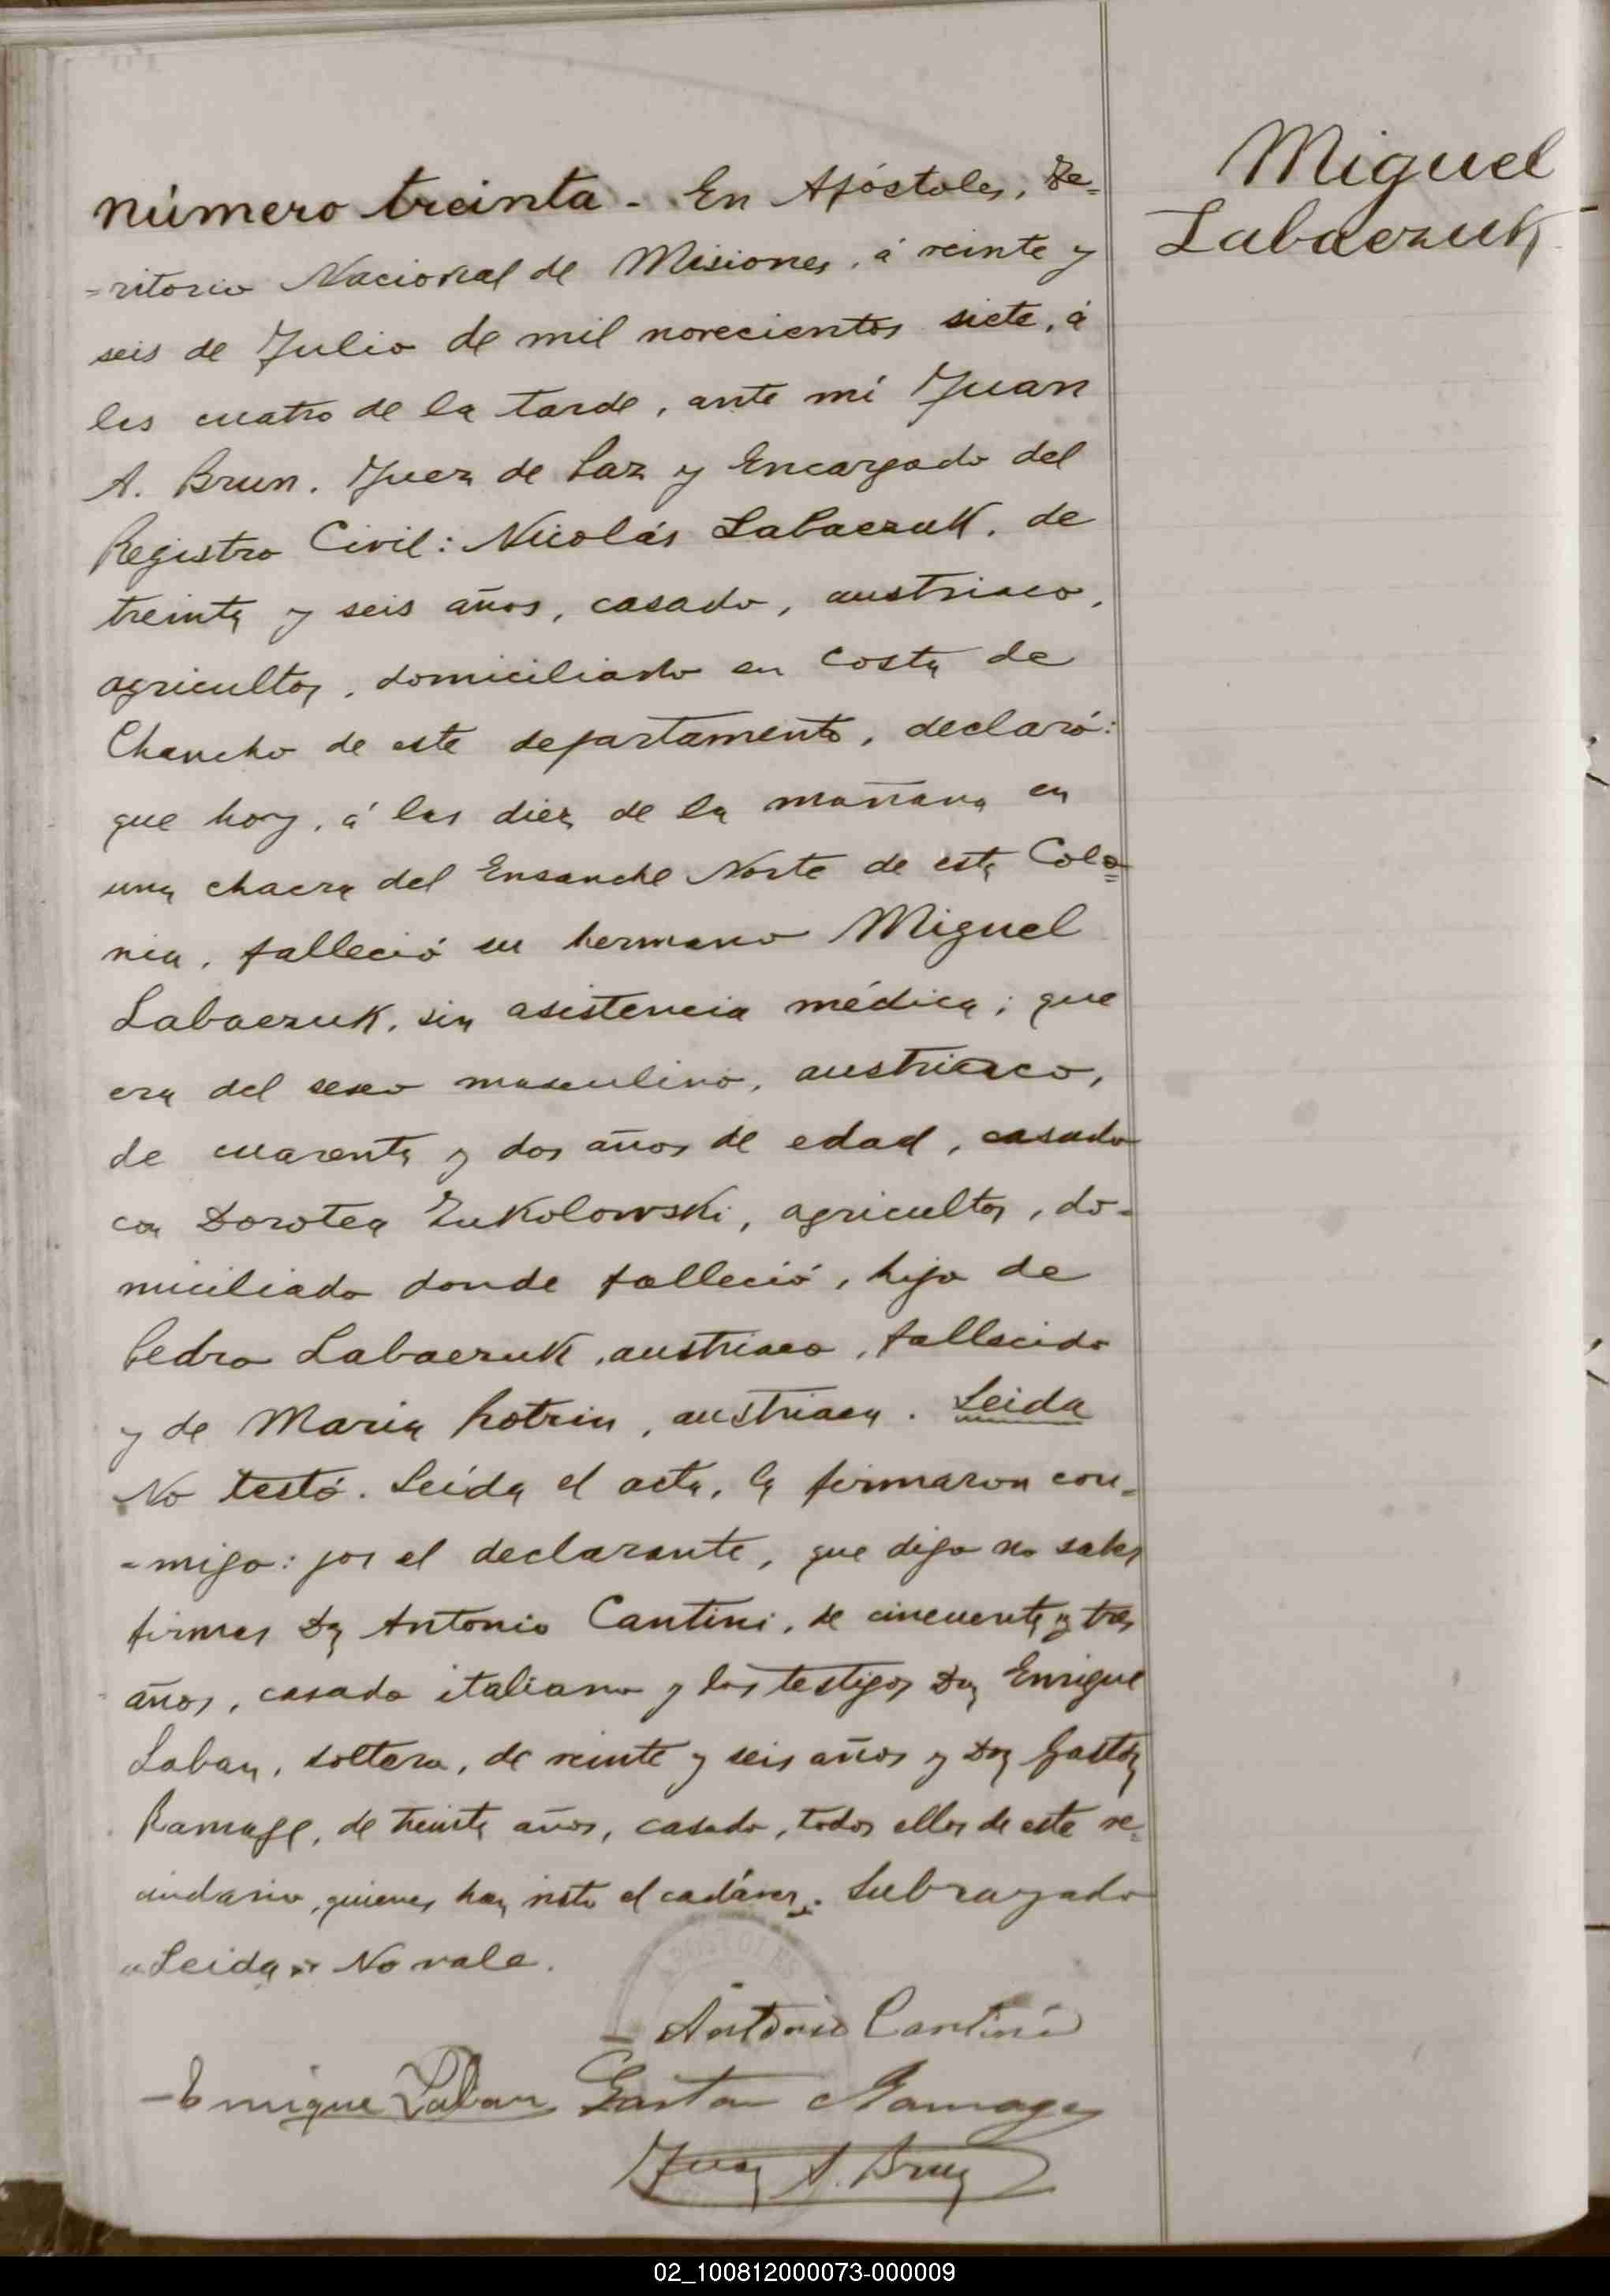 Miguel
Labaczuk
número treinta - En Apóstoles, Te=
=ritorio Nacional de Misiones, á veinte y
seis de Julio de mil novecientos siete, á
las cuatro de la tarde, ante mí Juan
A. Brun. Juez de Paz y Encargado del
Registro Civil: Nicolás Labaczuk, de
treinta y seis años, casado, austriaco,
agricultor, domiciliado en Costa de
Chancho de este departamento, declaró:
que hoy, á las diez de la mañana en
una chacra del Ensanche Norte de esta Colo=
nia, falleció su hermano Miguel
Labaczuk, sin asistencia médica; que
era del sexo masculino, austriaco,
de cuarenta y dos años de edad, casado
con Dorotea Zukolowski, agricultor, do-
miciliado donde falleció, hijo de
Pedro Labaczuk, austriaco, fallecido
y de Maria Potrin, austriaca. Leida
No testó. Leída el acta, la firmaron con-
-migo: por el declarante, que dijo no saber
firmar Dn Antonio Cantini, de cincuenta y tres
años, casado italiano y los testigos Don Enrique
Laban, soltero, de veinte y seis años y Don Gastón
Ramage, de treinta años, casado, todos ellos de este ve=
cindario, quienes han visto el cadáver. Subrayado
"Leida" No vale.
- Antonio Cantini
- Enrique Laban Gaston Ramage
Juan A. Brun
02_100812000073-000009